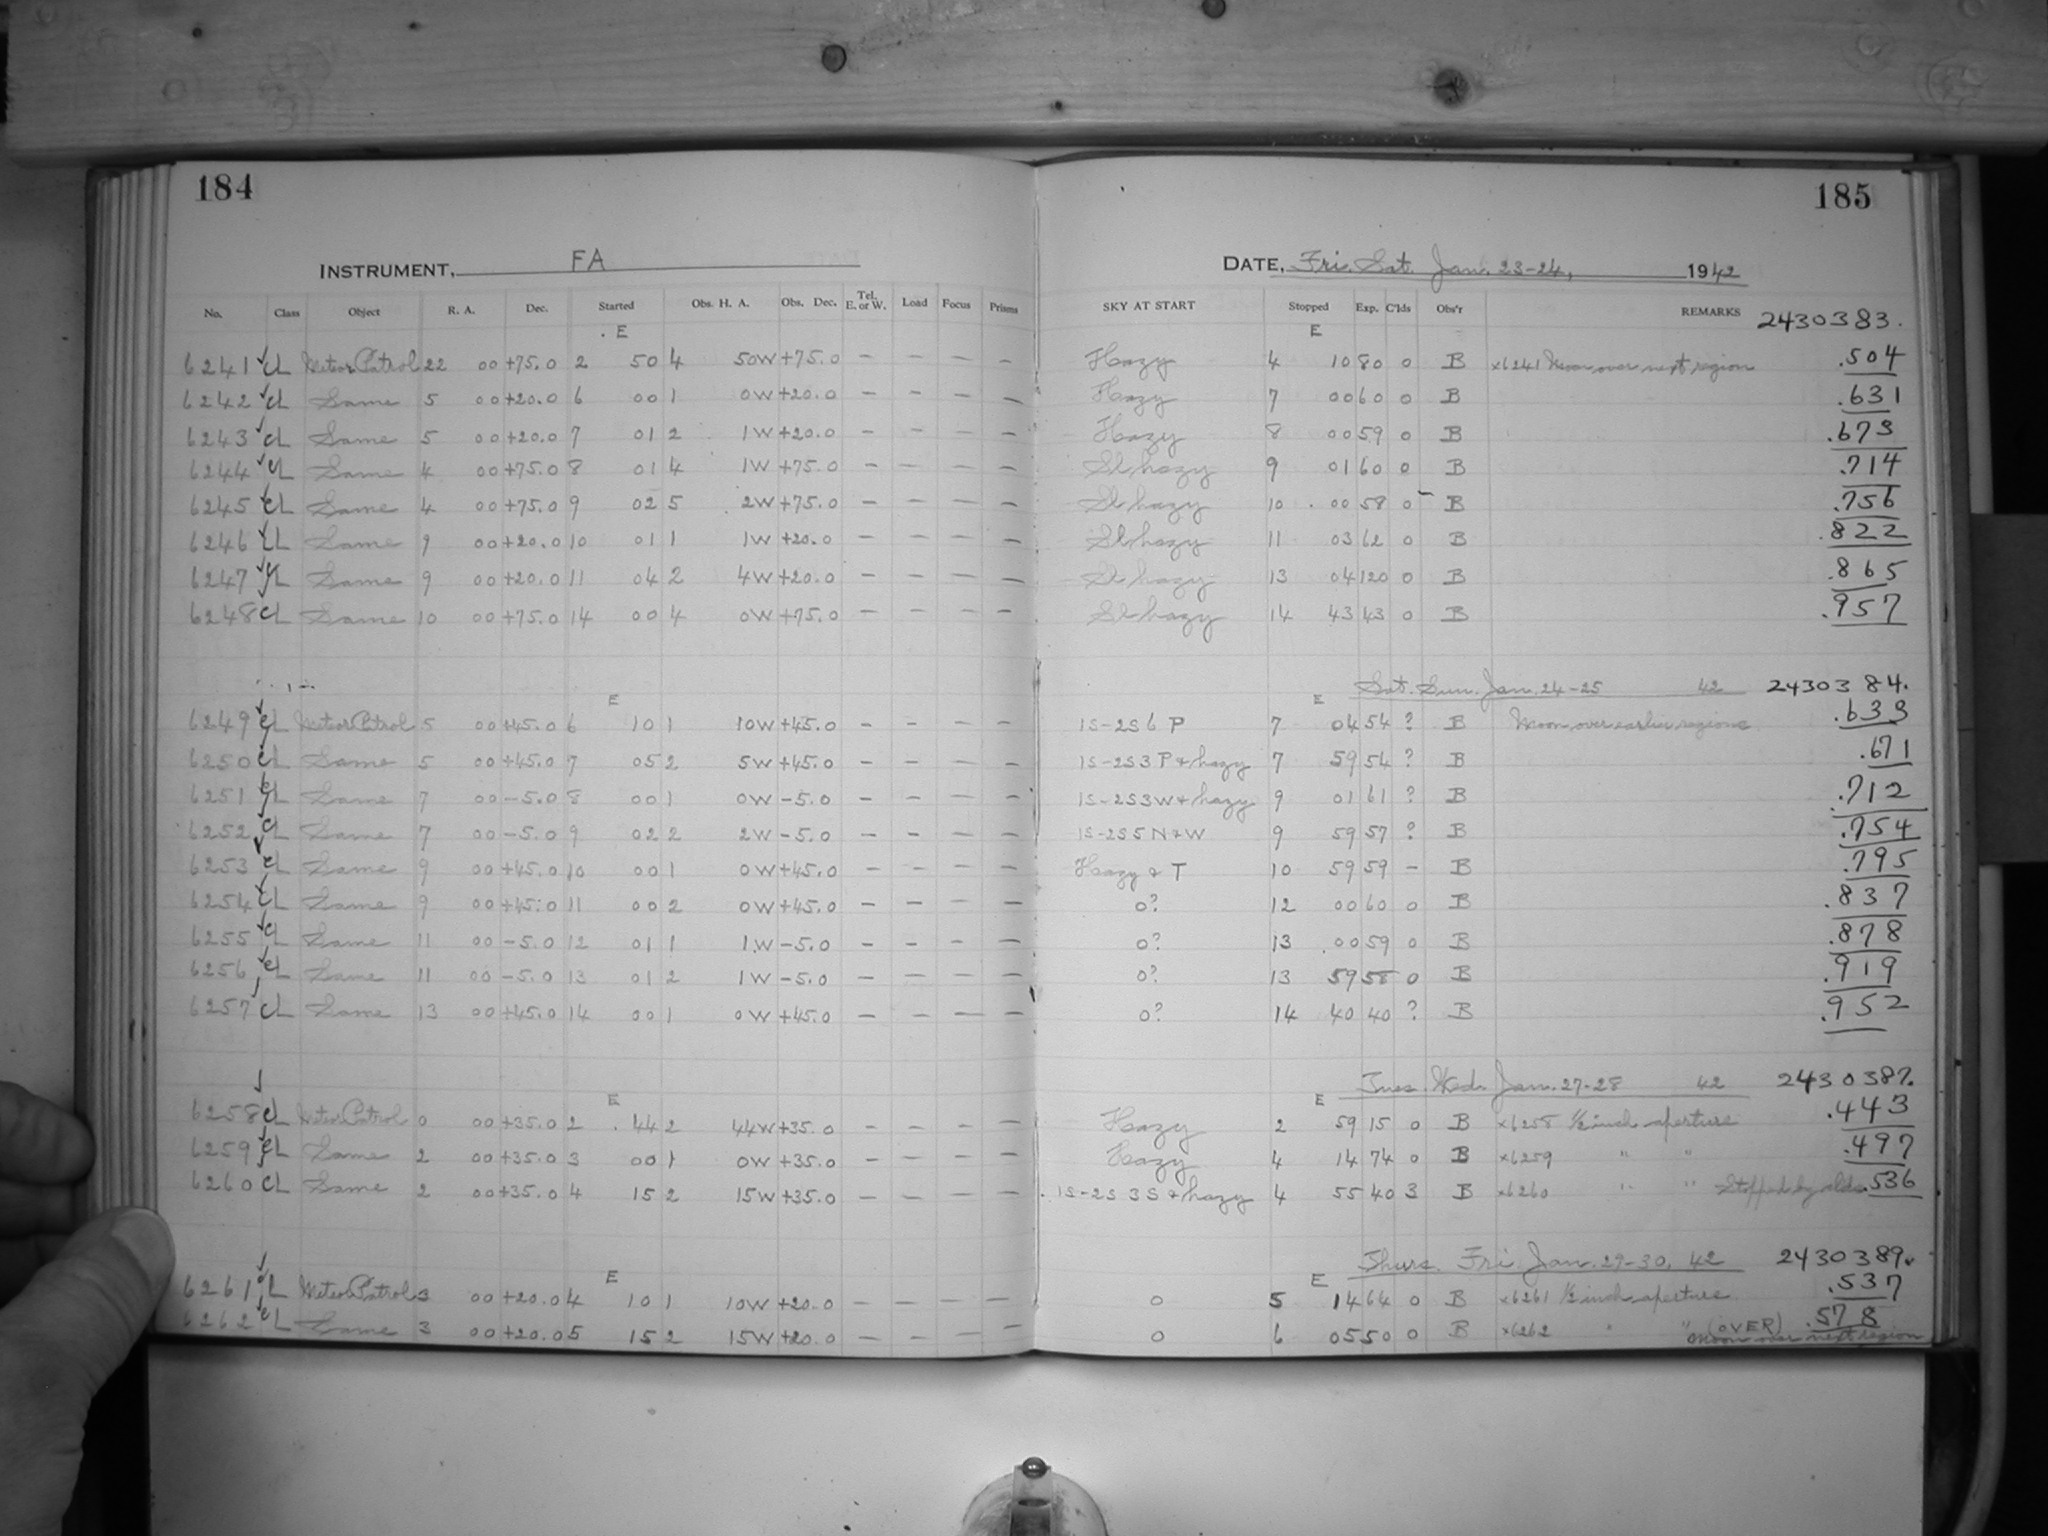 184
185
INSTRUMENT, FA
DATE, Fri. Sat. Jan. 23-24, 1942
No. Class Object R. A. Dec. Started Obs. H. A. Obs. Dec. Tel. E. or W. Load Focus Prisms SKY AT START Stopped Exp. C'lds Obs'r REMARKS 2430383.
E E
6241 CL Meteor Patrol 22 00 +75.0 2 50 4 50W +75.0 — — — — Hazy 4 10 80 0 B ×6241 Moon over next region .504
6242 CL Same 5 00 +20.0 6 00 1 0W +20.0 — — — — Hazy 7 00 60 0 B .631
6243 CL Same 5 00 +20.0 7 01 2 1W +20.0 — — — — Hazy 8 00 59 0 B .673
6244 CL Same 4 00 +75.0 8 01 4 1W +75.0 — — — — Sl hazy 9 01 60 0 B .714
6245 CL Same 4 00 +75.0 9 02 5 2W +75.0 — — — — Sl hazy 10 00 58 0 B .756
6246 CL Same 9 00 +20.0 10 01 1 1W +20.0 — — — — Sl hazy 11 03 62 0 B .822
6247 CL Same 9 00 +20.0 11 04 2 4W +20.0 — — — — Sl hazy 13 04 120 0 B .865
6248 CL Same 10 00 +75.0 14 00 4 0W +75.0 — — — — Sl hazy 14 43 43 0 B .957
E E Sat. Sun. Jan. 24-25 42 2430384.
6249 CL Meteor Patrol 5 00 +45.0 6 10 1 10W +45.0 — — — — 1S-2S 6 P 7 04 54 ? B Moon over earlier regions .633
6250 CL Same 5 00 +45.0 7 05 2 5W +45.0 — — — — 1S-2S 3 P & hazy 7 59 54 ? B .671
6251 CL Same 7 00 -5.0 8 00 1 0W -5.0 — — — — 1S-2S 3W & hazy 9 01 61 ? B .712
6252 CL Same 7 00 -5.0 9 02 2 2W -5.0 — — — — 1S-2S 5 N & W 9 59 57 ? B .754
6253 CL Same 9 00 +45.0 10 00 1 0W +45.0 — — — — Hazy & T 10 59 59 — B .795
6254 CL Same 9 00 +45.0 11 00 2 0W +45.0 — — — — 0? 12 00 60 0 B .837
6255 CL Same 11 00 -5.0 12 01 1 1W -5.0 — — — — 0? 13 00 59 0 B .878
6256 CL Same 11 00 -5.0 13 01 2 1W -5.0 — — — — 0? 13 59 58 0 B .919
6257 CL Same 13 00 +45.0 14 00 1 0W +45.0 — — — — 0? 14 40 40 ? B .952
E E Tues. Wed. Jan. 27-28 42 2430387.
6258 CL Meteor Patrol 0 00 +35.0 2 44 2 44W +35.0 — — — — Hazy 2 59 15 0 B ×6258 ½ inch aperture .443
6259 CL Same 2 00 +35.0 3 00 1 0W +35.0 — — — — Hazy 4 14 74 0 B ×6259 " " .497
6260 CL Same 2 00 +35.0 4 15 2 15W +35.0 — — — — 1S-2S 3 S & hazy 4 55 40 3 B ×6260 " " Stopped by clds .536
E E Thurs. Fri. Jan. 29-30, 42 2430389.
6261 CL Meteor Patrol 3 00 +20.0 4 10 1 10W +20.0 — — — — 0 5 14 64 0 B ×6261 ½ inch aperture .537
6262 CL Same 3 00 +20.0 5 15 2 15W +20.0 — — — — 0 6 05 50 0 B ×6262 " " (OVER) .578
Moon over next region